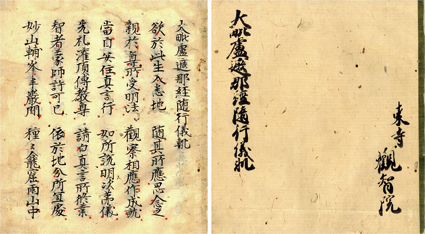 東寺 觀智院
大毗盧遮那經隨行儀軌
大毗盧遮那経随行儀軌
欲於此生入悉地 隨其所應思念之
親於尊所受明法 觀察相應作成就
當自安住真言行 如所説明次第儀
先礼灌頂傳教尊 請白真言所修業
智者蒙師許可已 依於地分所宜處
妙山輔峯半巖間 種々龕窟兩山中